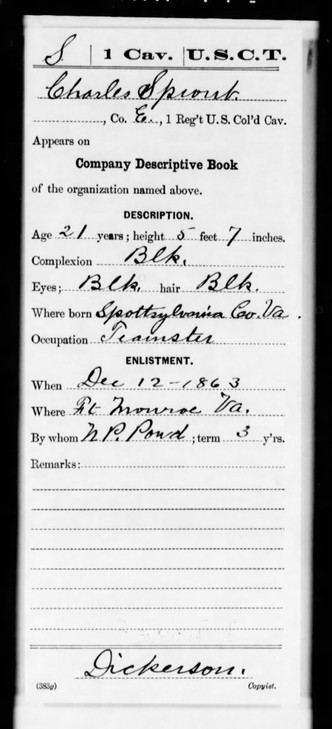 S | 1 Cav. | U.S.C.T.
Charles Sprout.
, Co. E., 1 Reg't U.S. Col'd Cav.
Appears on
Company Descriptive Book
of the organization named above.
DESCRIPTION.
Age 21 years; height 5 feet 7 inches.
Complexion Blk.
Eyes; Blk. hair Blk.
Where born Spottsylvania Co. Va.
Occupation Teamster
ENLISTMENT.
When Dec 12-1863
Where Ft. Monroe Va.
By whom N.P. Pond; term 3 y'rs.
Remarks:
Dickerson.
(383g) Copyist.